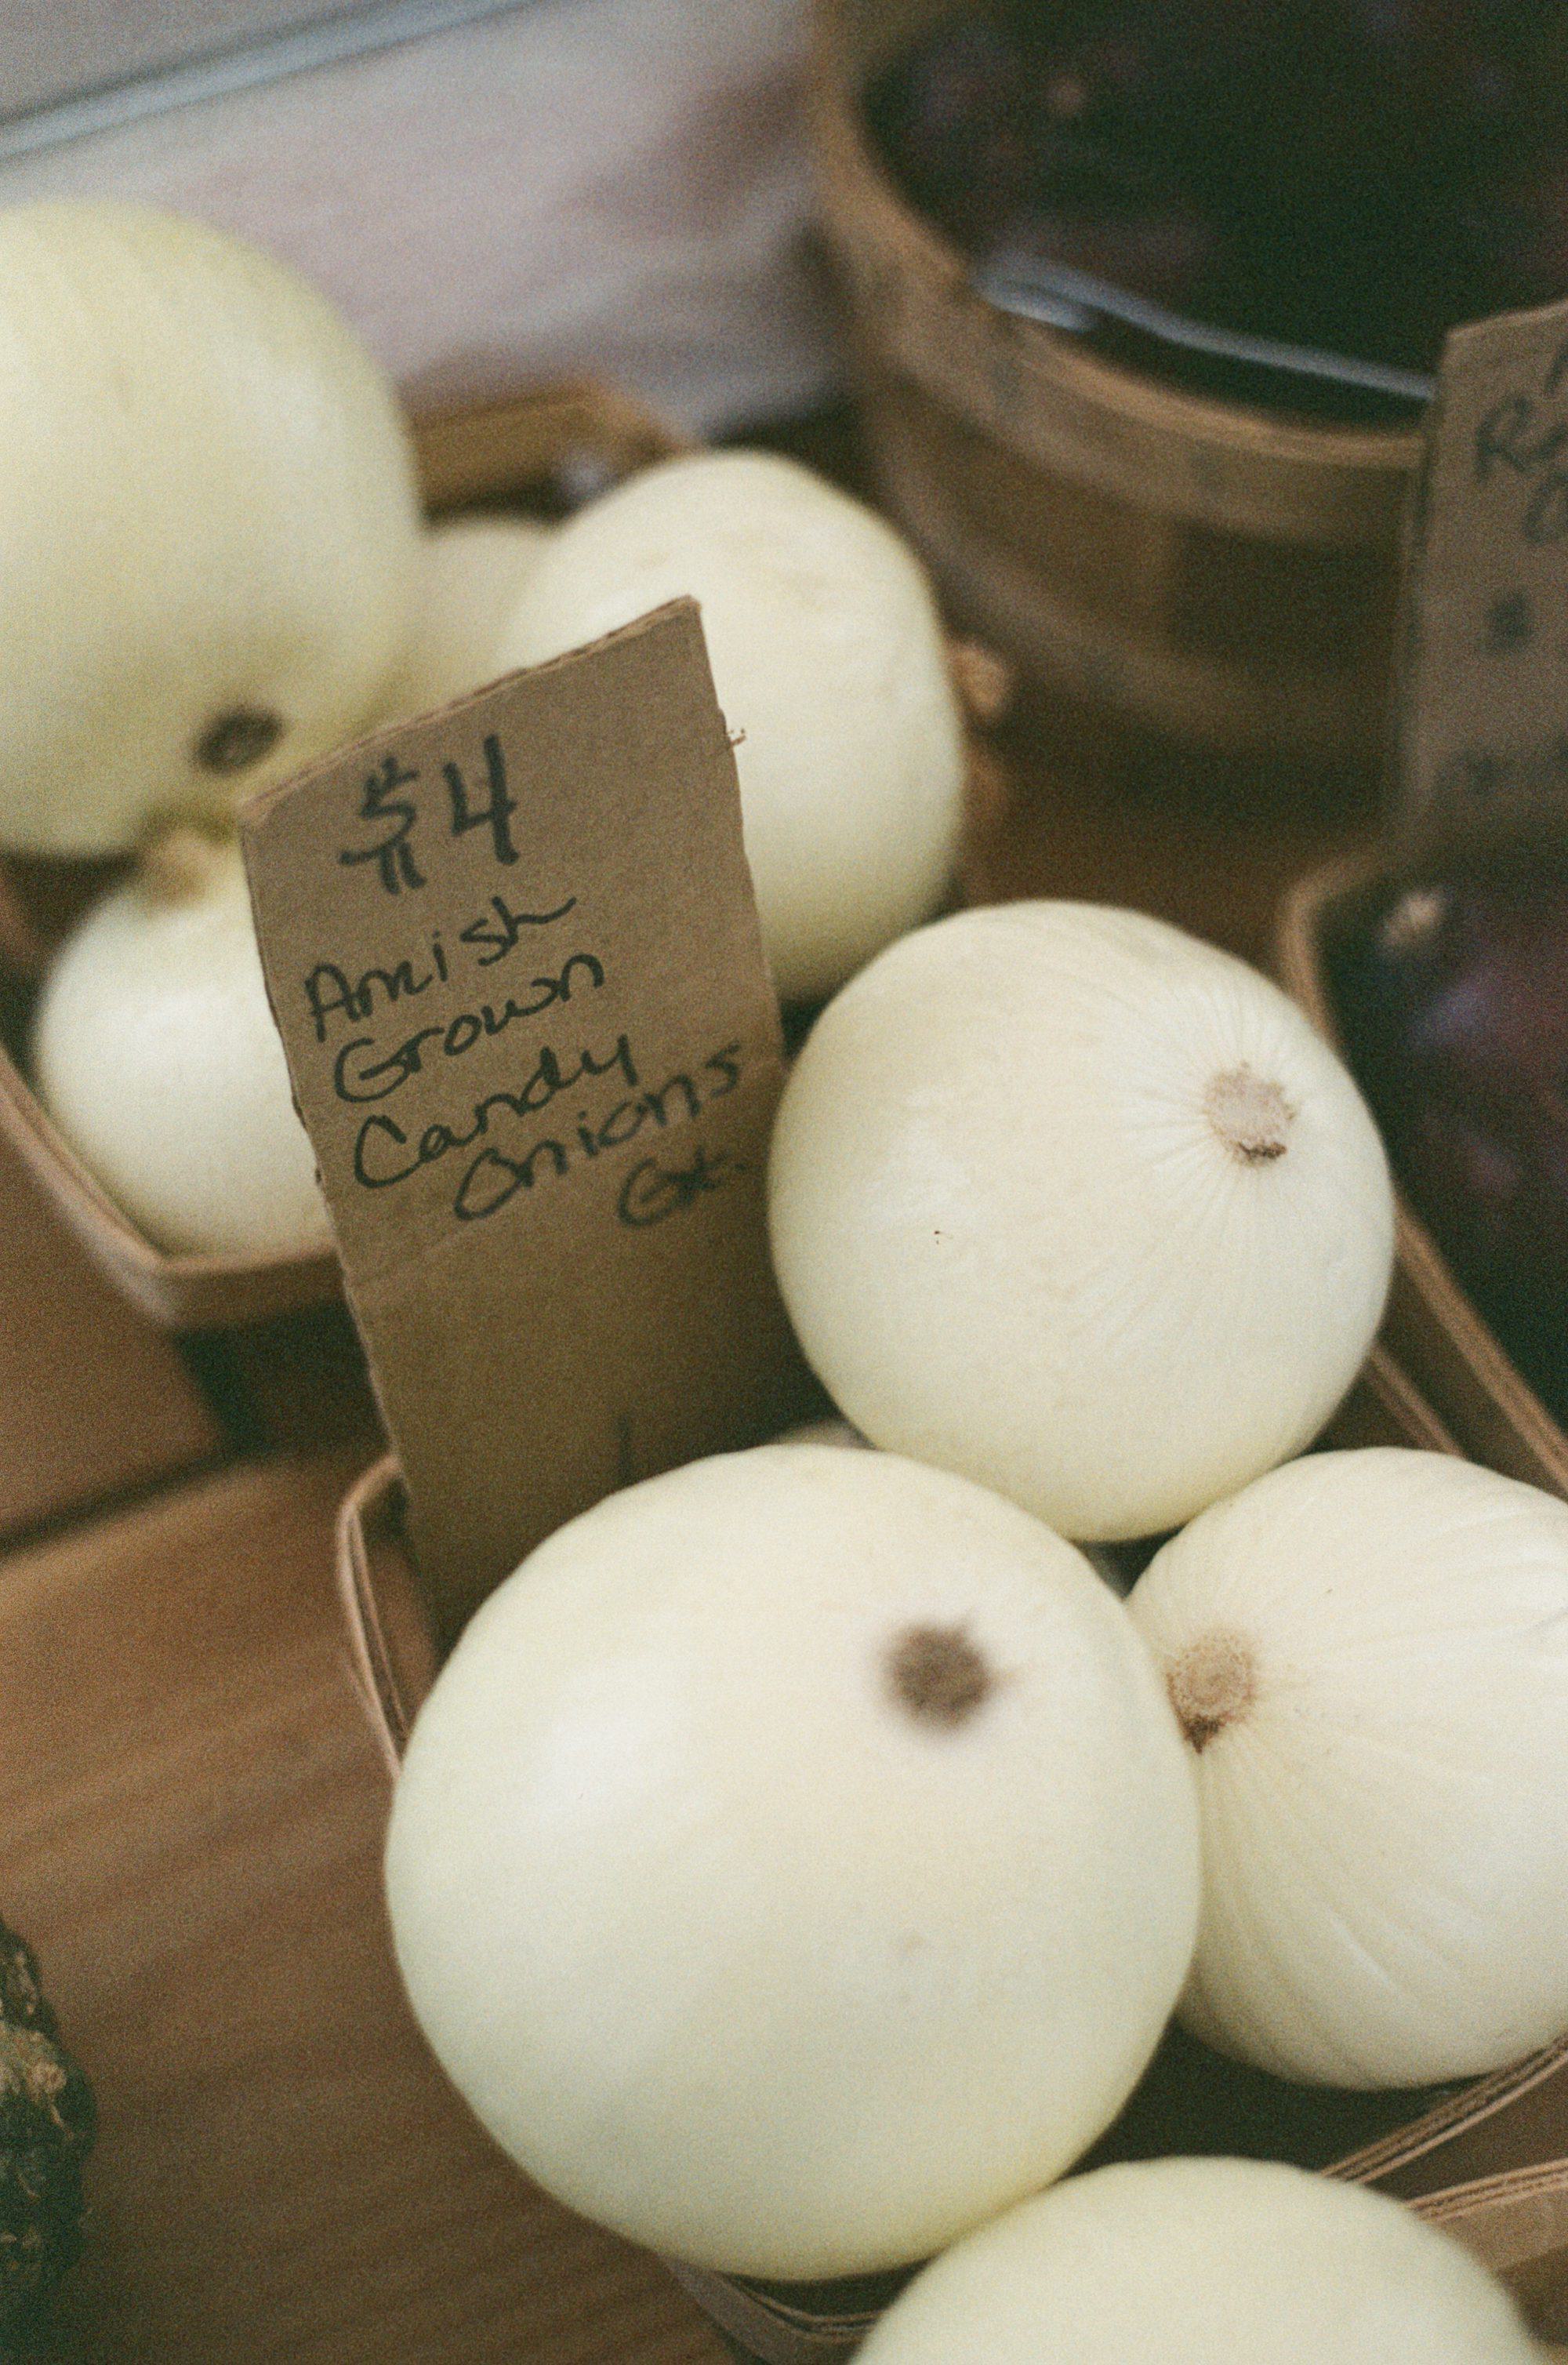 $4
Amish
Grown
Candy
Onions
Gt.